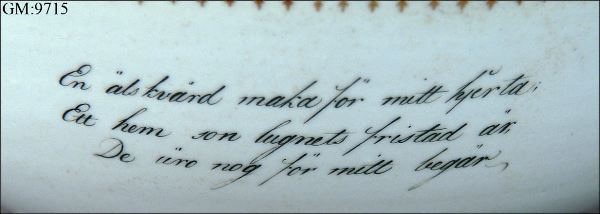 GM:9715
En älskvärd maka för mitt hjerta;
Ett hem son lugnets fristad är,
De äro nog för mitt begär,